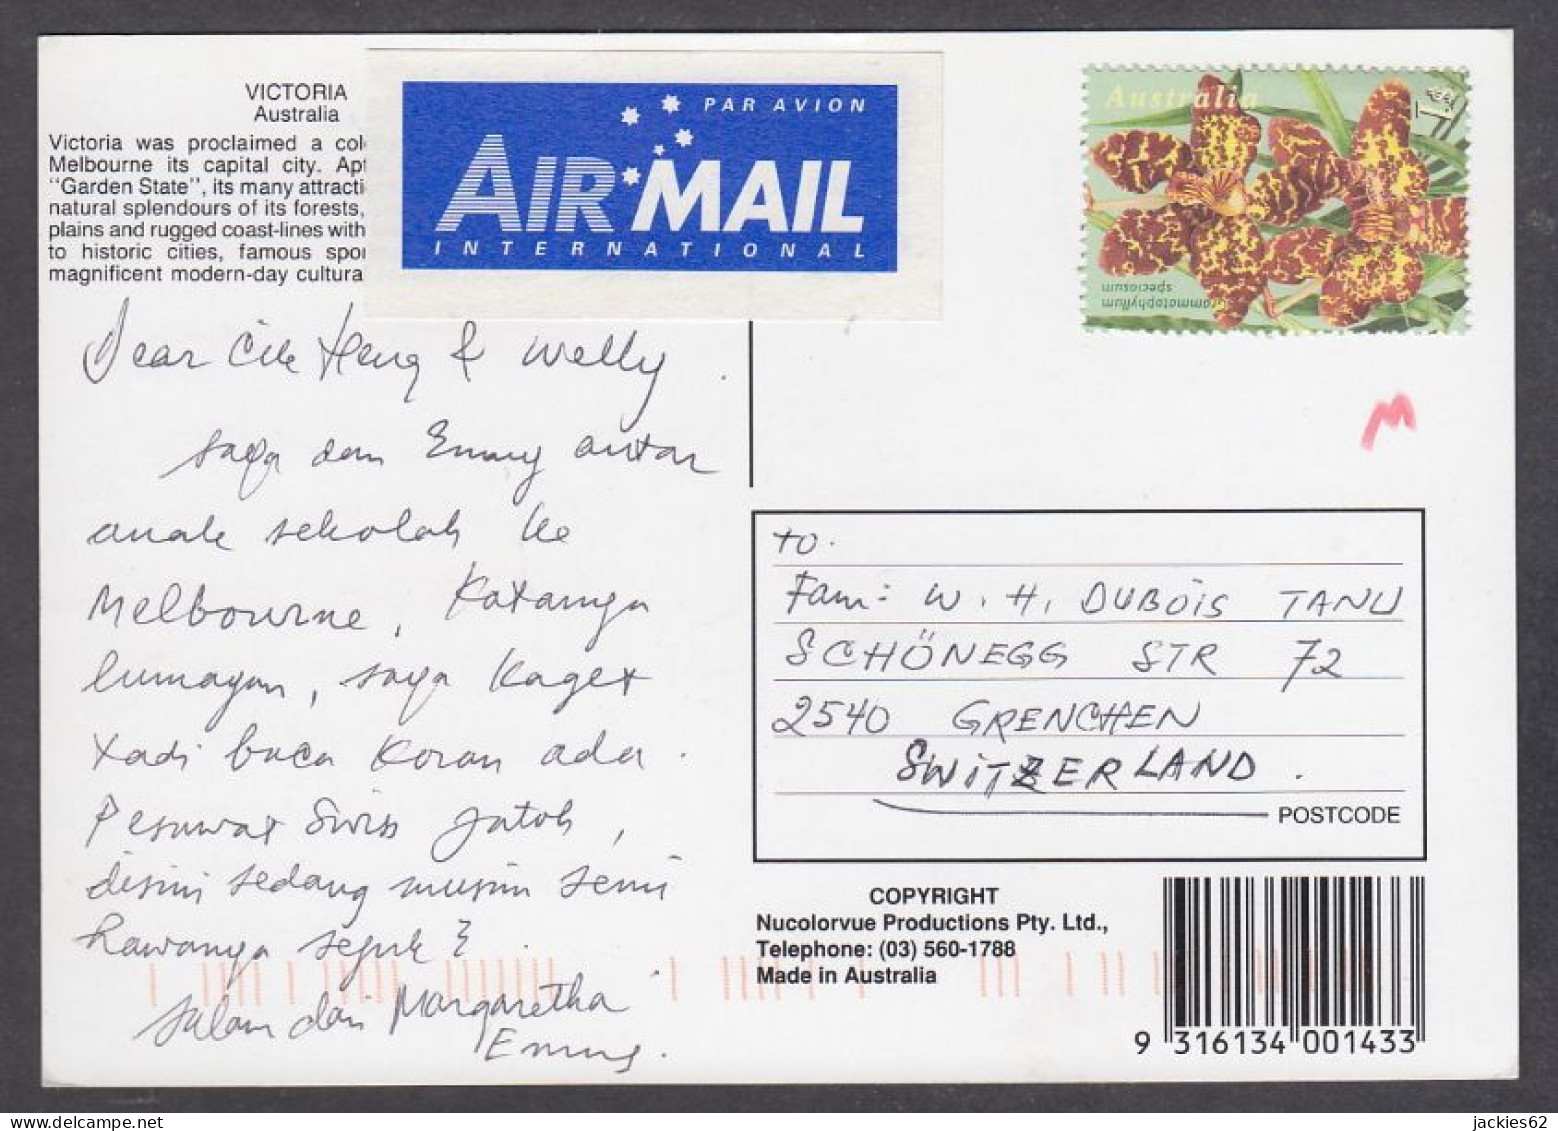 VICTORIA
Australia
Victoria was proclaimed a col
Melbourne its capital city. Apt
"Garden State", its many attracti
natural splendours of its forests,
plains and rugged coast-lines with
to historic cities, famous spor
magnificent modern-day cultura
PAR AVION
AIR MAIL
INTERNATIONAL
Australia
Grammatophyllum
speciosum
Dear Cik Heng & Welly.
saya dan Emmy antar
anak sekolah ke
Melbourne, Katanya
lumayan, saya kaget
tadi baca Koran ada.
Pesawat Swiss jatoh,
disini sedang musim semi
hawanya sejuk2
salam dari Margaretha
Emmy.
M
to.
Fam: W. H. DUBOIS TANU
SCHÖNEGG STR 72
2540 GRENCHEN
SWITZERLAND.
POSTCODE
COPYRIGHT
Nucolorvue Productions Pty. Ltd.,
Telephone: (03) 560-1788
Made in Australia
9 316134 001433
jackies62